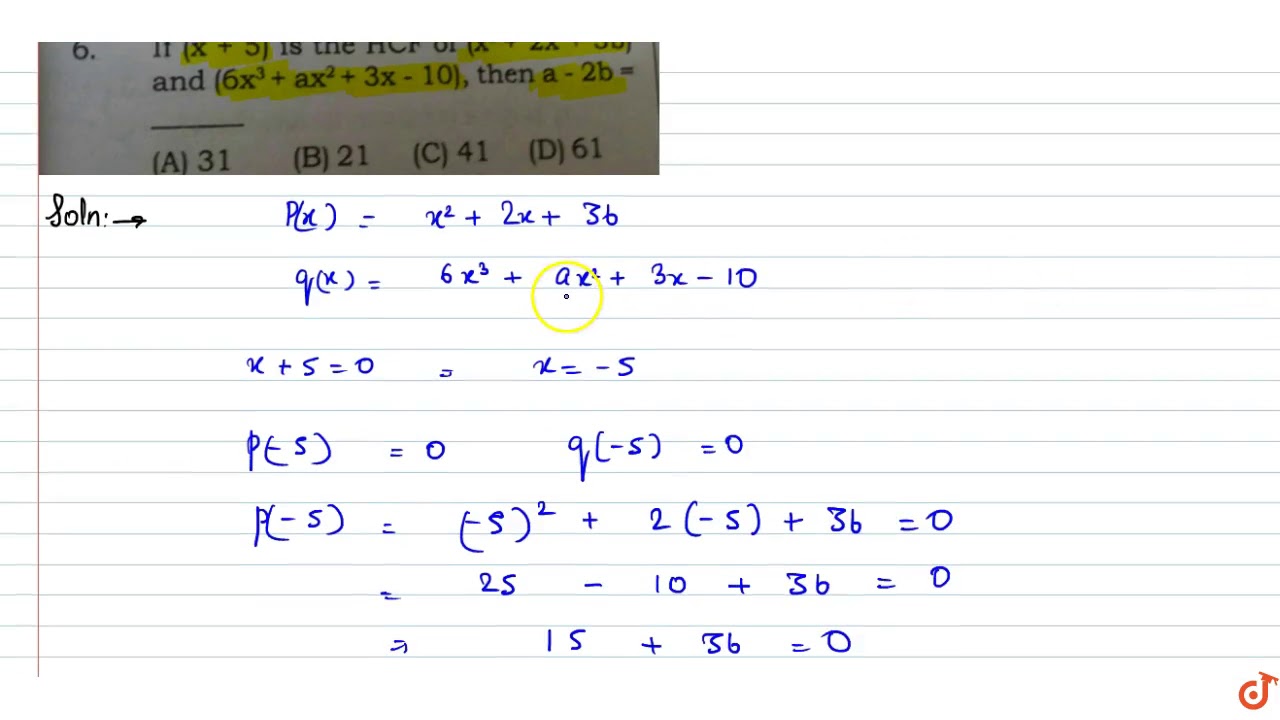 6. If (x + 5) is the HCF of (x² + 2x + 3b)
and (6x³ + ax² + 3x - 10), then a - 2b =
________
(A) 31 (B) 21 (C) 41 (D) 61
Soln:→ P(x) = x² + 2x + 3b
q(x) = 6x³ + ax² + 3x - 10
x + 5 = 0 = x = -5
P(-5) = 0 q(-5) = 0
P(-5) = (-5)² + 2(-5) + 3b = 0
= 25 - 10 + 3b = 0
⇒ 15 + 3b = 0